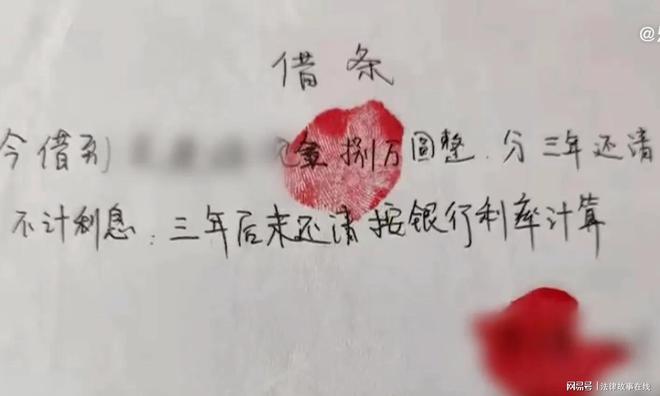 借条
今借到 金捌万圆整.分三年还清
不计利息.三年后未还清按银行利率计算
网易号 | 法律故事在线